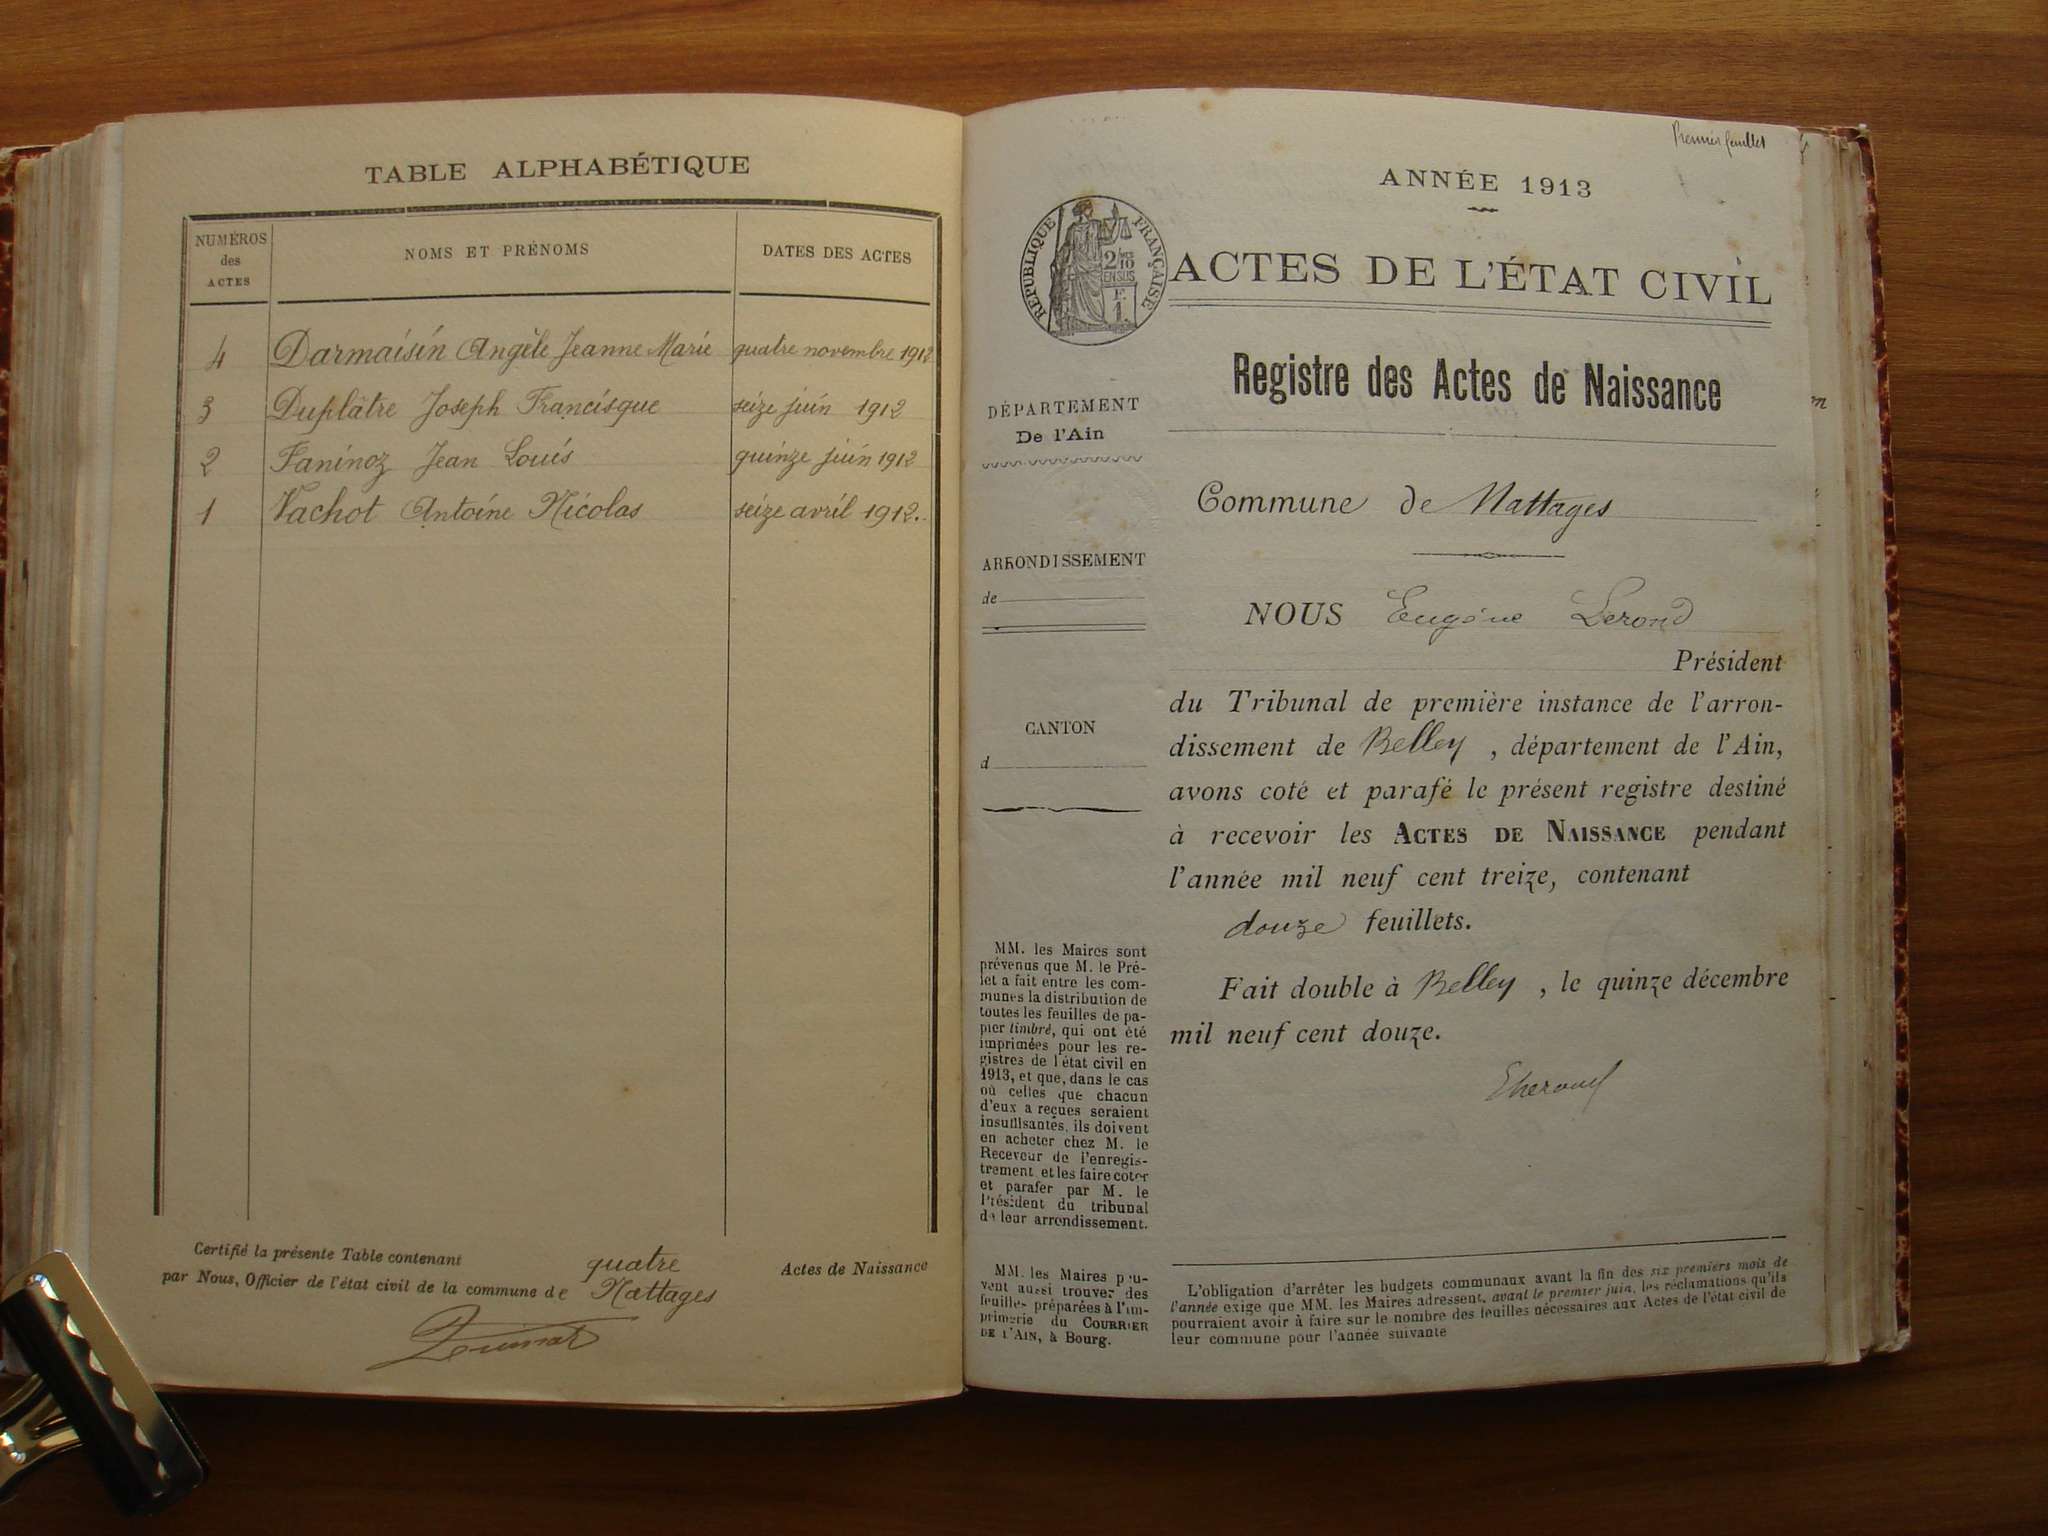 TABLE ALPHABÉTIQUE
NUMÉROS des ACTES
NOMS ET PRÉNOMS
DATES DES ACTES
4 Darmaisin Angèle Jeanne Marie quatre novembre 1912
3 Duplâtre Joseph Francisque seize juin 1912
2 Faninoz Jean Louis quinze juin 1912
1 Vachot Antoine Nicolas seize avril 1912.
Certifié la présente Table contenant quatre Actes de Naissance
par Nous, Officier de l'état civil de la commune de Nattages
Premier feuillet
ANNÉE 1913
RÉPUBLIQUE FRANÇAISE
2/10
EN SUS
F.
1.
ACTES DE L'ÉTAT CIVIL
Registre des Actes de Naissance
DÉPARTEMENT
De l'Ain
Commune de Nattages
ARRONDISSEMENT
de
NOUS Eugène Lerond
Président
du Tribunal de première instance de l'arron-
dissement de Belley, département de l'Ain,
avons coté et parafé le présent registre destiné
à recevoir les ACTES DE NAISSANCE pendant
l'année mil neuf cent treize, contenant
douze feuillets.
CANTON
d
Fait double à Belley, le quinze décembre
mil neuf cent douze.
MM. les Maires sont
prévenus que M. le Pré-
fet a fait entre les com-
munes la distribution de
toutes les feuilles de pa-
pier timbré, qui ont été
imprimées pour les re-
gistres de l'état civil en
1913, et que, dans le cas
où celles que chacun
d'eux a reçues seraient
insuffisantes, ils doivent
en acheter chez M. le
Receveur de l'enregis-
trement et les faire coter
et parafer par M. le
Président du tribunal
de leur arrondissement.
MM. les Maires peu-
vent aussi trouver des
feuilles préparées à l'im-
primerie du COURRIER
DE L'AIN, à Bourg.
L'obligation d'arrêter les budgets communaux avant la fin des six premiers mois de
l'année exige que MM. les Maires adressent, avant le premier juin, les réclamations qu'ils
pourraient avoir à faire sur le nombre des feuilles nécessaires aux Actes de l'état civil de
leur commune pour l'année suivante